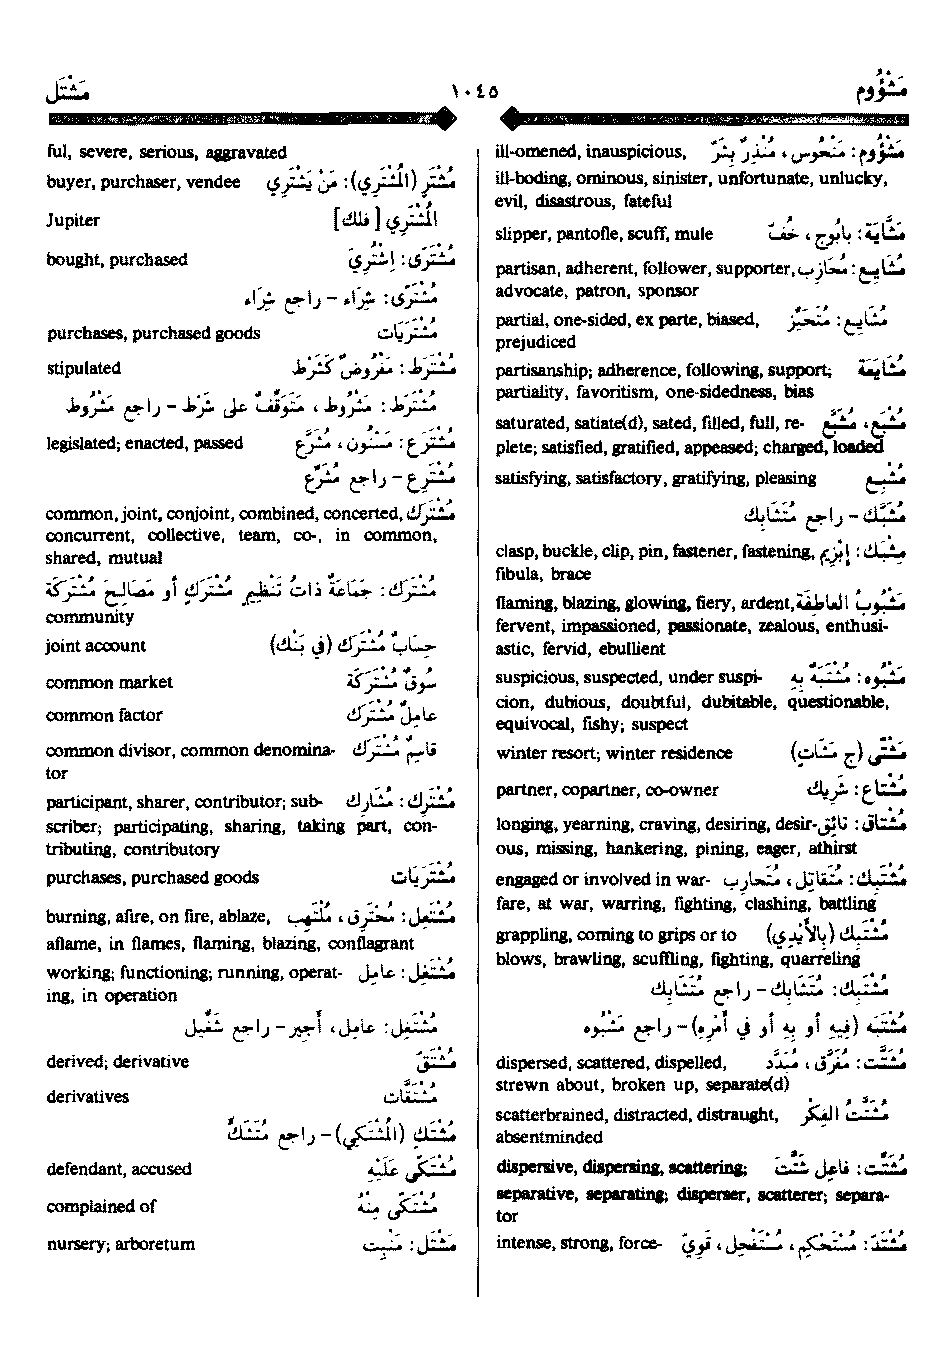 مَشْؤُوم ١٠٤٥ مَشْتَل
مَشْؤُوم : مَنْحُوس ، مُنْذِرٌ بِشَرّ ill-omened, inauspicious,
ill-boding, ominous, sinister, unfortunate, unlucky,
evil, disastrous, fateful
مَشَّايَة : بَابُوج ، خُفّ slipper, pantofle, scuff, mule
مُشَايِع : مُحَازِب partisan, adherent, follower, supporter,
advocate, patron, sponsor
مُشَايِع : مُتَحَيِّز partial, one-sided, ex parte, biased,
prejudiced
مُشَايَعَة partisanship; adherence, following, support;
partiality, favoritism, one-sidedness, bias
مُشْبَع ، مُشَبَّع saturated, satiate(d), sated, filled, full, re-
plete; satisfied, gratified, appeased; charged, loaded
مُشْبِع satisfying, satisfactory, gratifying, pleasing
مُشَبَّك - راجع مُتَشَابِك
مِشْبَك : إبْزِيم clasp, buckle, clip, pin, fastener, fastening,
fibula, brace
مَشْبُوبُ العَاطِفَة flaming, blazing, glowing, fiery, ardent,
fervent, impassioned, passionate, zealous, enthusi-
astic, fervid, ebullient
مَشْبُوه : مُشْتَبَهٌ بِهِ suspicious, suspected, under suspi-
cion, dubious, doubtful, dubitable, questionable,
equivocal, fishy; suspect
مَشْتًى (ج مَشَاتٍ) winter resort; winter residence
مُشْتَاع : شَرِيك partner, copartner, co-owner
مُشْتَاق : تَائِق longing, yearning, craving, desiring, desir-
ous, missing, hankering, pining, eager, athirst
مُشْتَبِك : مُتَقَاتِل ، مُتَحَارِب engaged or involved in war-
fare, at war, warring, fighting, clashing, battling
مُشْتَبِك (بِالأَيْدِي) grappling, coming to grips or to
blows, brawling, scuffling, fighting, quarreling
مُشْتَبِك : مُتَشَابِك - راجع مُتَشَابِك
مُشْتَبَه (فِيهِ أو بِهِ أو في أَمْرِهِ) - راجع مَشْبُوه
مُشَتَّت : مُفَرَّق ، مُبَدَّد dispersed, scattered, dispelled,
strewn about, broken up, separate(d)
مُشَتَّتُ الفِكْر scatterbrained, distracted, distraught,
absentminded
مُشَتِّت : فاعل شَتَّتَ dispersive, dispersing, scattering;
separative, separating; disperser, scatterer; separa-
tor
مُشْتَدّ : مُسْتَحْكِم ، مُسْتَفْحِل ، قَوِيّ intense, strong, force-
ful, severe, serious, aggravated
مُشْتَرٍ (المُشْتَرِي) : مَنْ يَشْتَرِي buyer, purchaser, vendee
المُشْتَرِي [ فلك ] Jupiter
مُشْتَرَى : اِشْتُرِيَ bought, purchased
مُشْتَرًى : شِرَاء - راجع شِرَاء
مُشْتَرَيَات purchases, purchased goods
مُشْتَرَط : مَفْرُوضٌ كَشَرْط stipulated
مُشْتَرَط : مَشْرُوط ، مُتَوَقِّفٌ على شَرْط - راجع مَشْرُوط
مُشْتَرَع : مَسْنُون ، مُشَرَّع legislated; enacted, passed
مُشْتَرِع - راجع مُشَرِّع
مُشْتَرَك common, joint, conjoint, combined, concerted,
concurrent, collective, team, co-, in common,
shared, mutual
مُشْتَرَك : جَمَاعَةٌ ذَاتُ تَنْظِيمٍ مُشْتَرَكٍ أو مَصَالِحَ مُشْتَرَكَة
community
حِسَابٌ مُشْتَرَك (في بَنْك) joint account
سُوقٌ مُشْتَرَكَة common market
عَامِلٌ مُشْتَرَك common factor
قَاسِمٌ مُشْتَرَك common divisor, common denomina-
tor
مُشْتَرِك : مُشَارِك participant, sharer, contributor; sub-
scriber; participating, sharing, taking part, con-
tributing, contributory
مُشْتَرَيَات purchases, purchased goods
مُشْتَعِل : مُحْتَرِق ، مُلْتَهِب burning, afire, on fire, ablaze,
aflame, in flames, flaming, blazing, conflagrant
مُشْتَغِل : عَامِل working; functioning; running, operat-
ing, in operation
مُشْتَغِل : عَامِل ، أَجِير - راجع شَغِّيل
مُشْتَقّ derived; derivative
مُشْتَقَّات derivatives
مُشْتَكٍ (المُشْتَكِي) - راجع مُتَشَكٍّ
مُشْتَكًى عَلَيْهِ defendant, accused
مُشْتَكًى مِنْهُ complained of
مَشْتَل : مَنْبِت nursery; arboretum